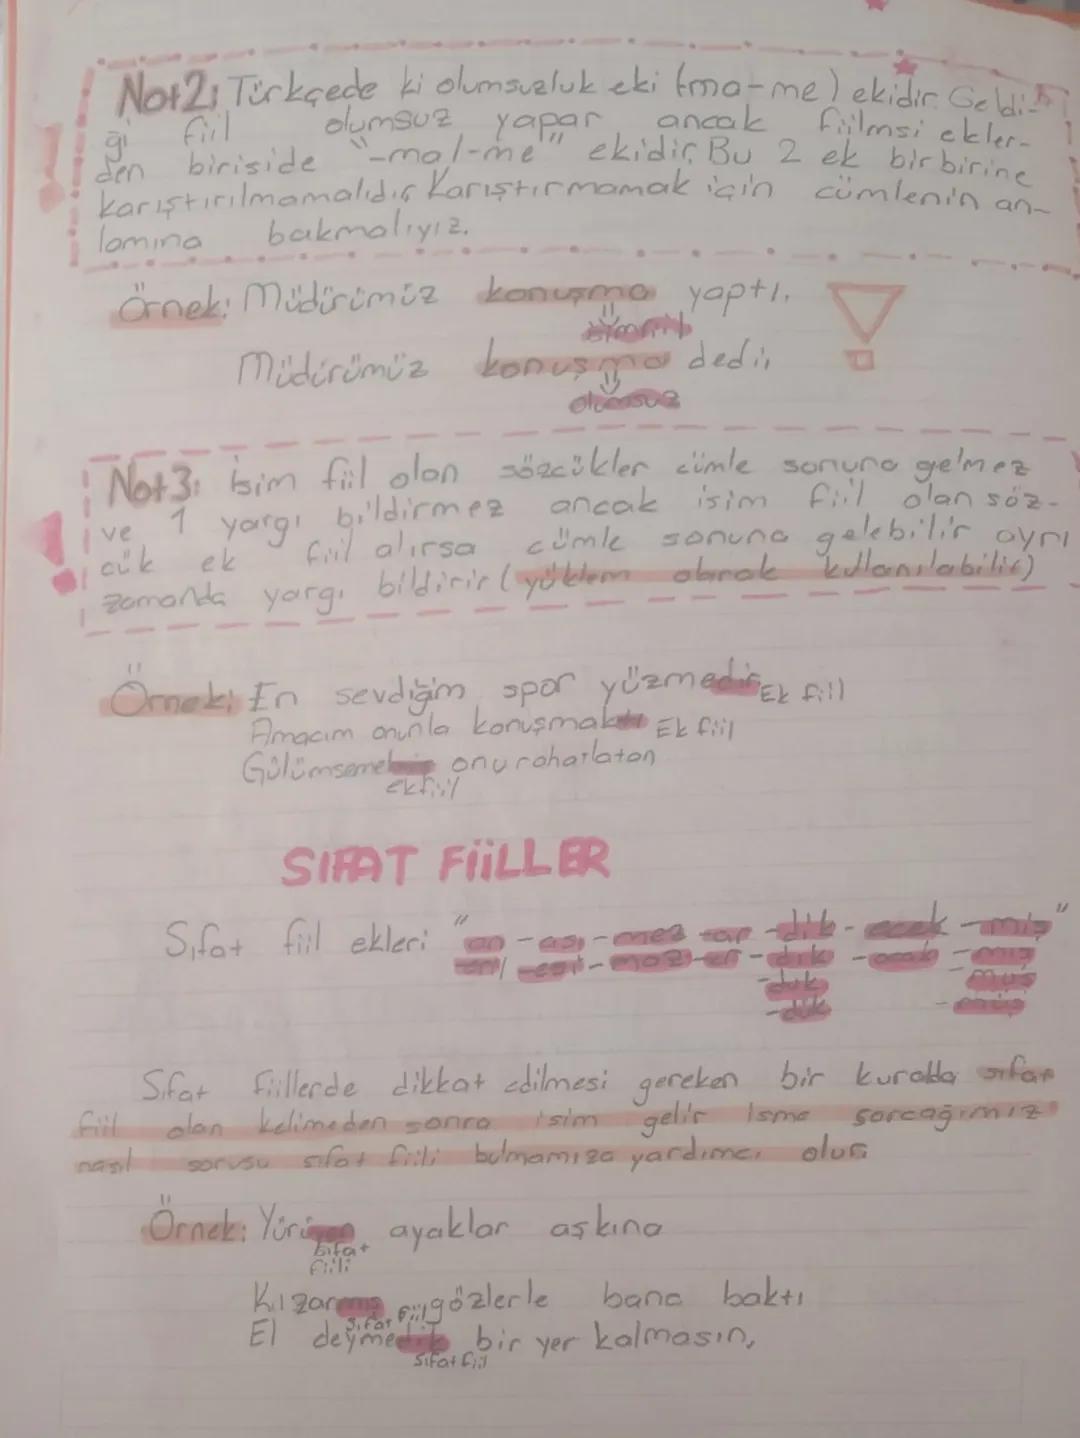 Not2: Türkçede ki olumsuzluk eki (-ma-me) ekidir. Geldi-
ği fiil olumsuz yapar ancak fiilmsi ekler-
den biriside "-ma/-me" ekidir. Bu 2 ek birbirine
karıştırılmamalıdır. Karıştırmamak için cümlenin an-
lamına bakmalıyız.
Örnek: Müdürümüz konuşma yaptı.
isimfiil
Müdürümüz konuşma dedi.
olumsuz
Not3: İsim fiil olan sözcükler cümle sonuna gelmez
ve 1 yargı bildirmez ancak isim fiil olan söz-
cük ek fiil alırsa cümle sonuna gelebilir ayrı
zamanda yargı bildirir (yüklem olarak kullanılabilir)
Örnek: En sevdiğim spor yüzmedir Ek fiil
Amacım onunla konuşmaktı Ek fiil
Gülümseme onu rahatlatan
ekfiil
SIFAT FİİLLER
Sıfat fiil ekleri "an -ası -mez -ar -dik -ecek -miş"
-en/ -esi -maz -er -dık -acak -mış
-duk -muş
-dük -müş
Sıfat fiillerde dikkat edilmesi gereken bir kuralda sıfat
fiil olan kelimeden sonra isim gelir isme sorcağımız
nasıl sorusu sıfat fiili bulmamıza yardımcı olur.
Örnek: Yürüyen ayaklar aşkına
Sıfat
fiili
Kızarmış gözlerle bana baktı
Sıfat fiil
El deymedik bir yer kalmasın.
Sıfat fiil